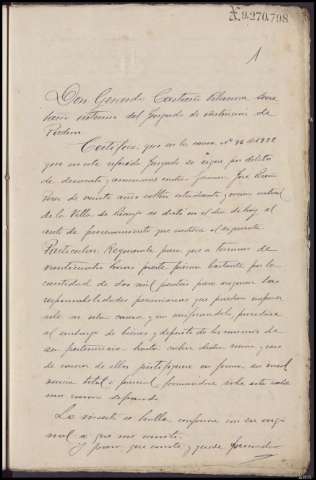 X.9.270.798
1
Don Gerardo Castiñeira Vilanova Secre
tario interino del Juzgado de instruccion de
Padron
Certifico: que en la causa nº 96 de 1922
que en este referido Juzgado se sigue por delito
de contra José
de veinte años soltero estudiante, y vecino
de la Villa de Rianjo se dictó en el dia de hoy el
auto de procesamiento que contiene el siguiente
Particular: Requierase para que en termino de
veinticuatro horas preste fianza bastante por la
cantidad de dos mil pesetas para asegurar las
responsabilidades pecuniarias que puedan imponer
sele en esta causa y no verificandolo procedase
al embargo de bienes y deposito de los mismos de
su pertenencia hasta cubrir dicha suma y caso
de carecer de ellos justifiquese en forma su insol
vencia total o parcial, formandose sobre esto
ramo separado
Lo inserto es
nal a que me remito.
Y para que conste, y pueda